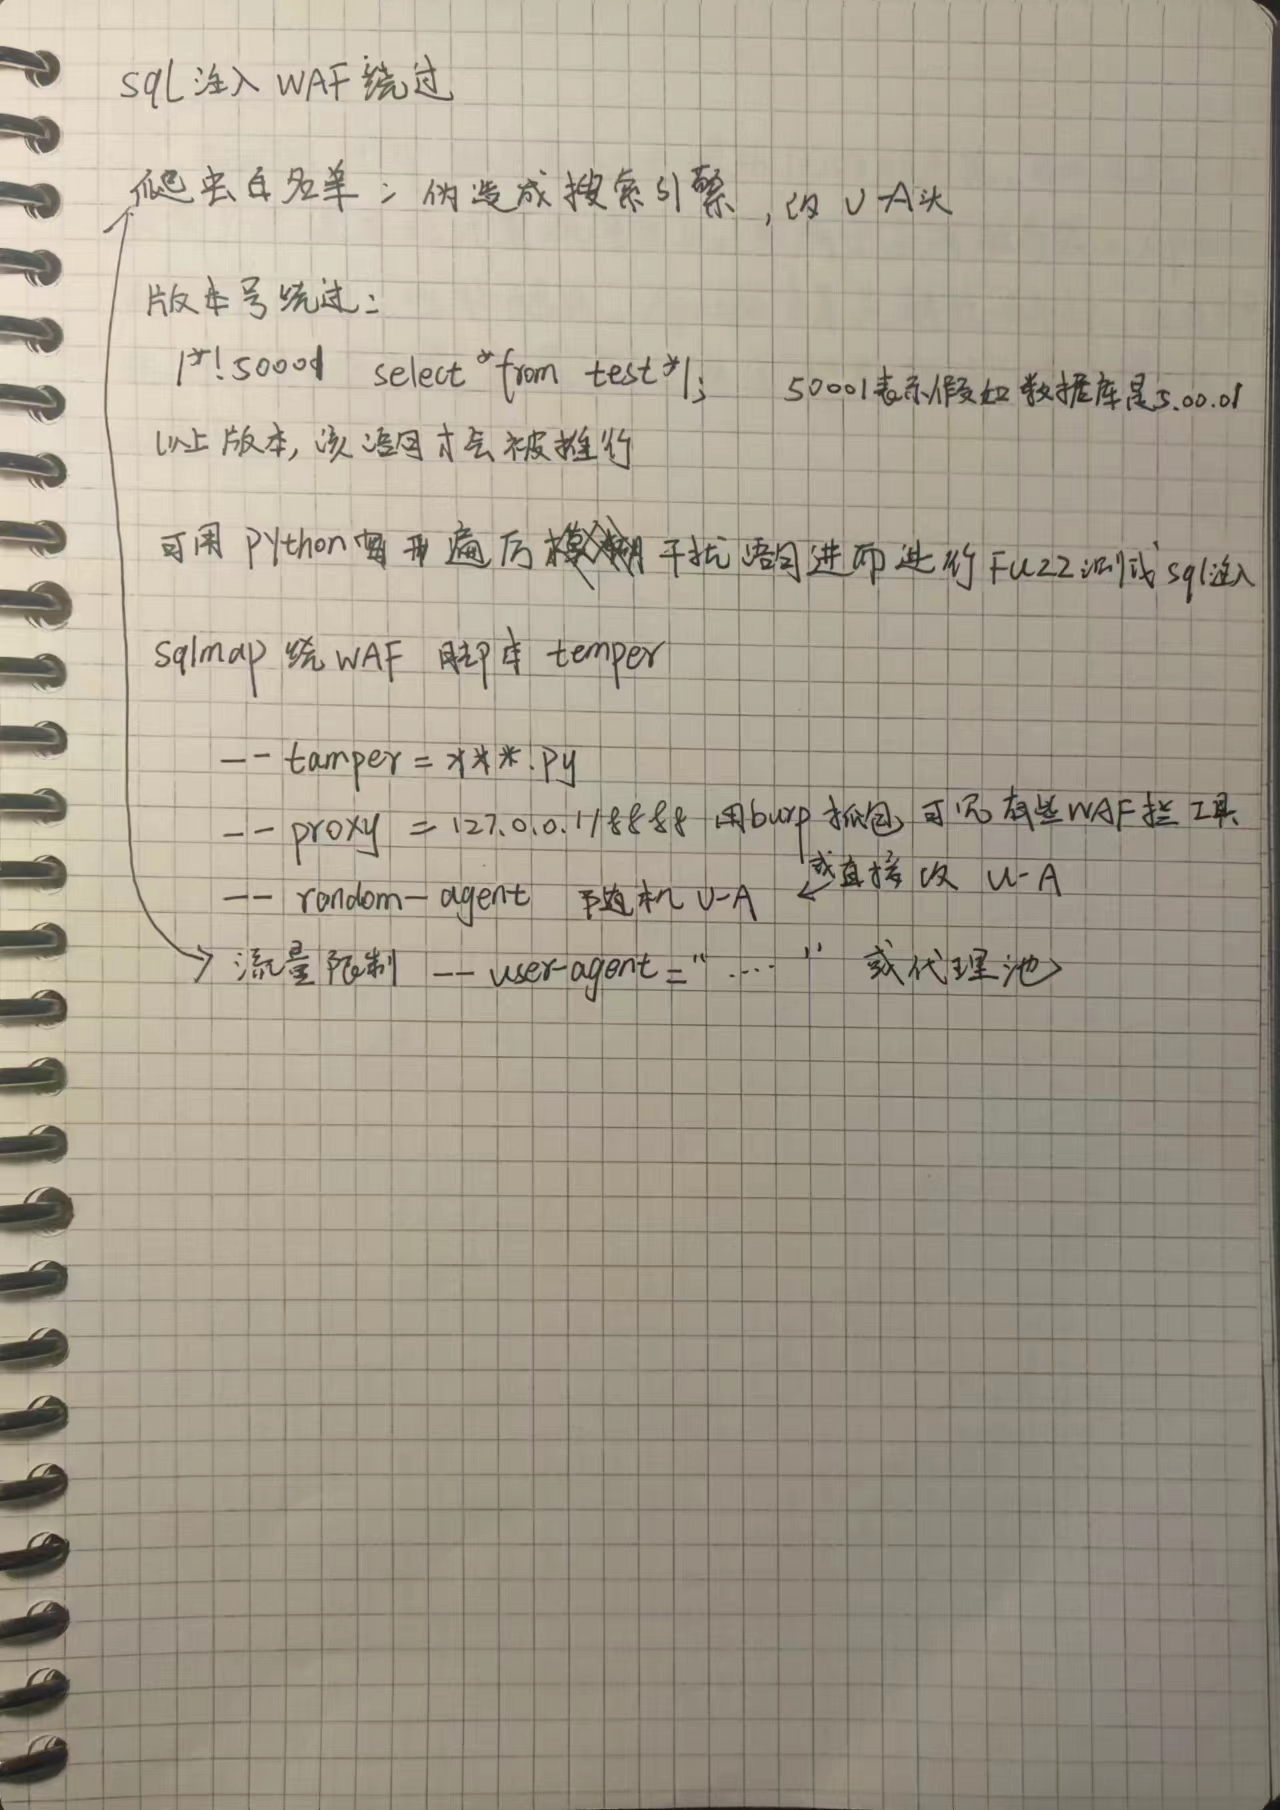 sql注入WAF绕过
爬虫白名单：伪造成搜索引擎，改U-A头
版本号绕过：
/*!50001 select *from test*/; 50001表示假如数据库是5.00.01
以上版本，该语句才会被执行
可用python写 遍历 干扰语句进而进行Fuzz测试sql注入
sqlmap绕WAF 脚本temper
-- tamper = ***.py
-- proxy = 127.0.0.1/8888 用burp抓包，可见有些WAF拦工具
或直接改 U-A
-- random-agent 随机U-A
流量限制 -- user-agent="...." 或代理池